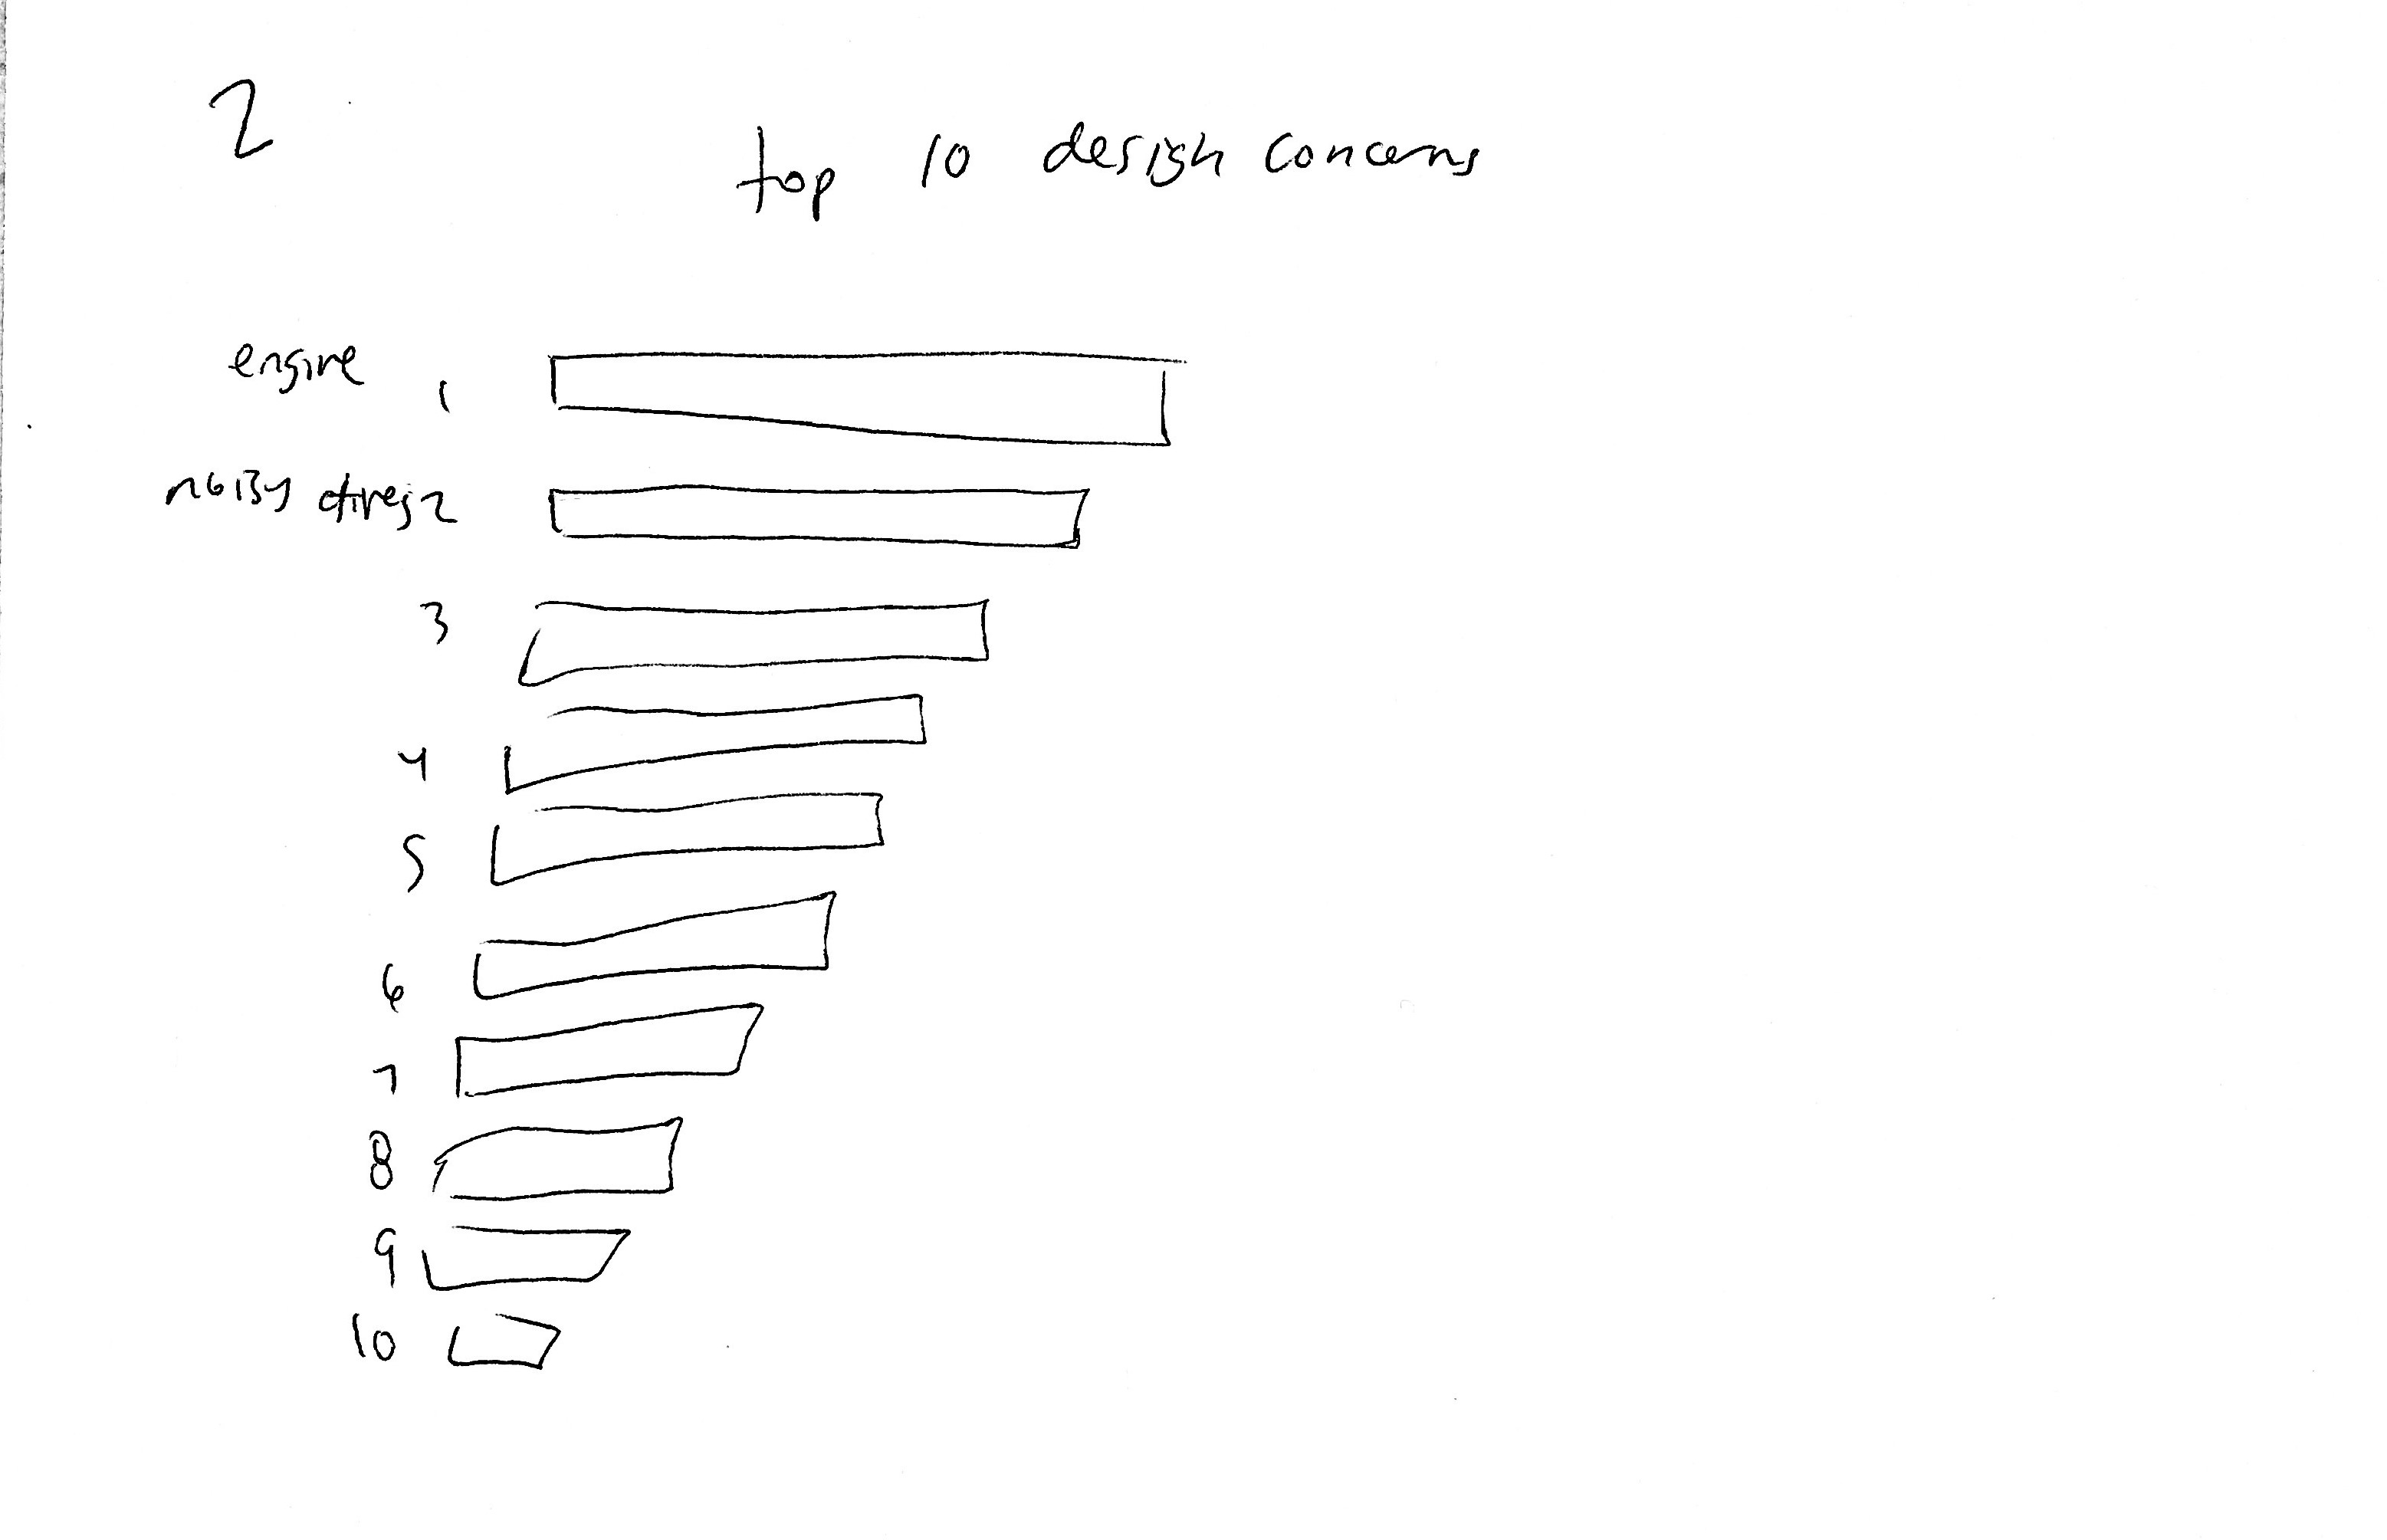 2
top 10 design concerns
engine 1
noisy tires 2
3
4
5
6
7
8
9
10